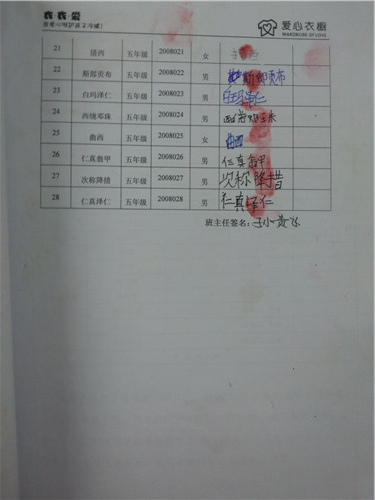 衣衣爱
爱心衣橱
WARDROBE OF LOVE
21 措西 五年级 2008021 女
22 斯郎贡布 五年级 2008022 男 斯郎贡布
23 白玛泽仁 五年级 2008023 男
24 西绕邓珠 五年级 2008024 男
25 曲西 五年级 2008025 女 曲西
26 仁真翁甲 五年级 2008026 男 仁真翁甲
27 次称降措 五年级 2008027 男 次称降措
28 仁真泽仁 五年级 2008028 男 仁真泽仁
班主任签名: